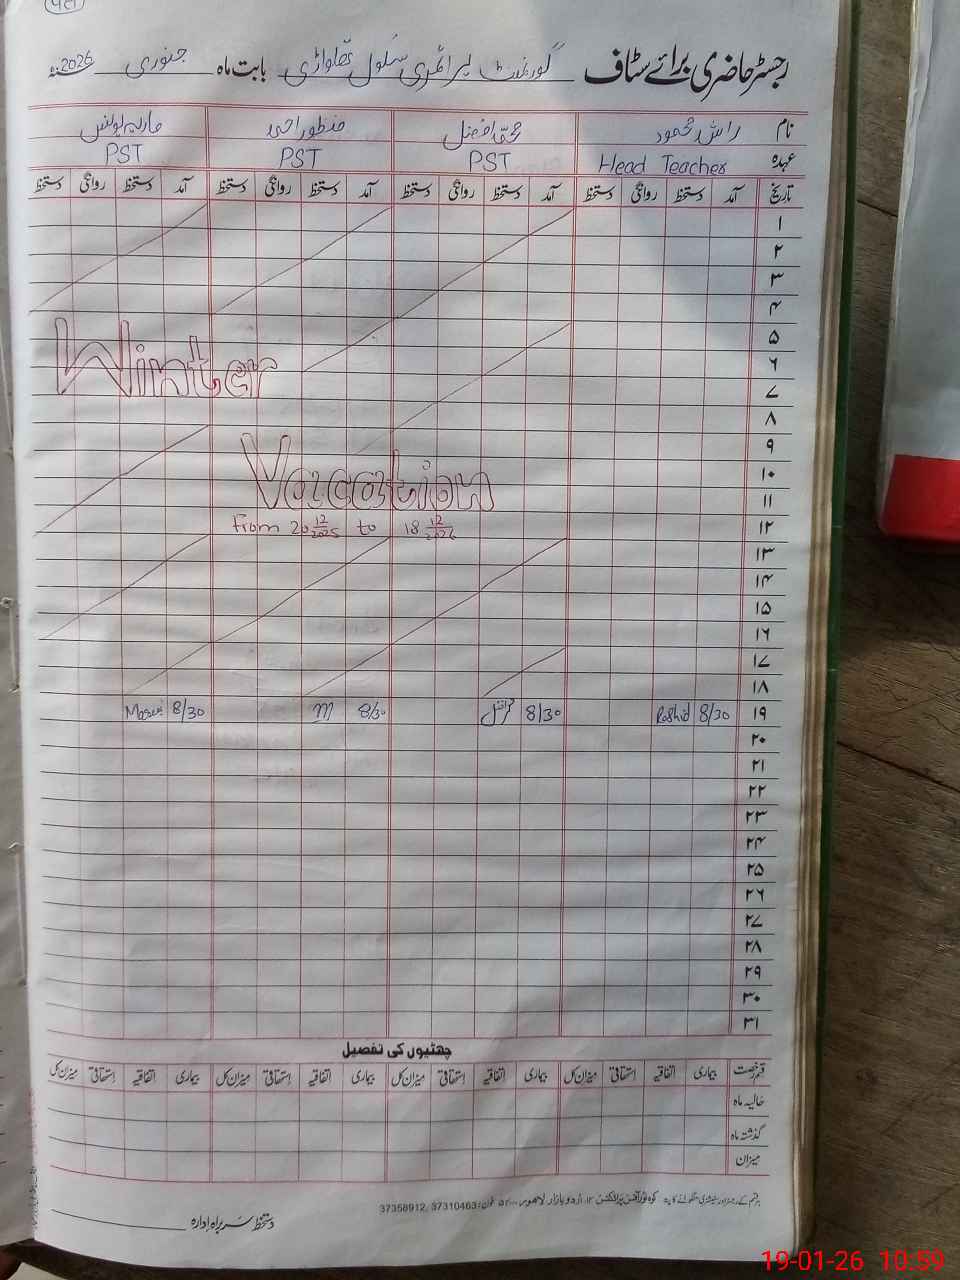 رجسٹر حاضری برائے سٹاف گورنمنٹ پرائمری سکول پھلواڑی بابت ماہ جنوری سنہ 2026ء
نام راشد محمود محمد افضل منظور احمد ماریہ یونس
عہدہ Head Teacher PST PST PST
تاریخ آمد دستخط روانگی دستخط آمد دستخط روانگی دستخط آمد دستخط روانگی دستخط آمد دستخط روانگی دستخط
۱
۲
۳
۴
۵
۶
۷
Winter
۸
۹
۱۰
Vacation
۱۱
۱۲
From 20 12/2025 to 18 12/2026
۱۳
۱۴
۱۵
۱۶
۱۷
۱۸
۱۹ 8/30 Rashid 8/30 8/30 m 8/30
۲۰
۲۱
۲۲
۲۳
۲۴
۲۵
۲۶
۲۷
۲۸
۲۹
۳۰
۳۱
چھٹیوں کی تفصیل
قسم رخصت بیماری اتفاقیہ استحقاقی میزان کل بیماری اتفاقیہ استحقاقی میزان کل بیماری اتفاقیہ استحقاقی میزان کل بیماری اتفاقیہ استحقاقی میزان کل
حالیہ ماہ
گذشتہ ماہ
میزان
ہر قسم کے رجسٹر اور سٹیشنری منگوانے کا پتہ اردو بازار لاہور فون: 37310463, 37358912
دستخط سربراہ ادارہ
19-01-26 10:59